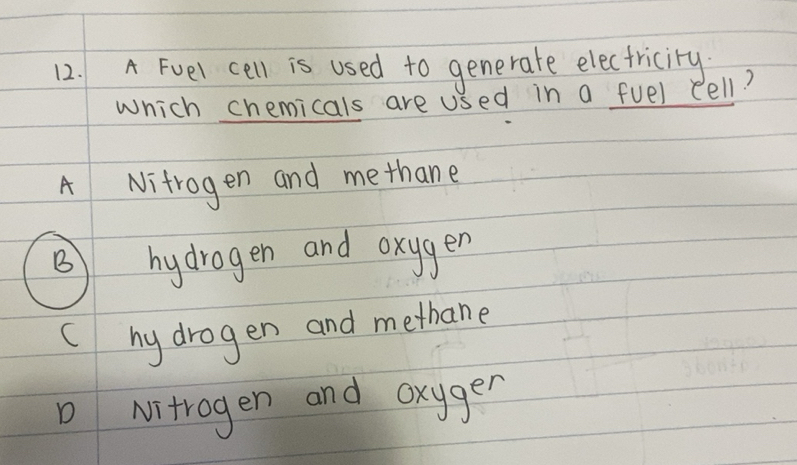 12. A Fuel cell is used to generate electricity.
which chemicals are used in a fuel cell?
A Nitrogen and methane
B hydrogen and oxygen
C hydrogen and methane
D Nitrogen and oxygen